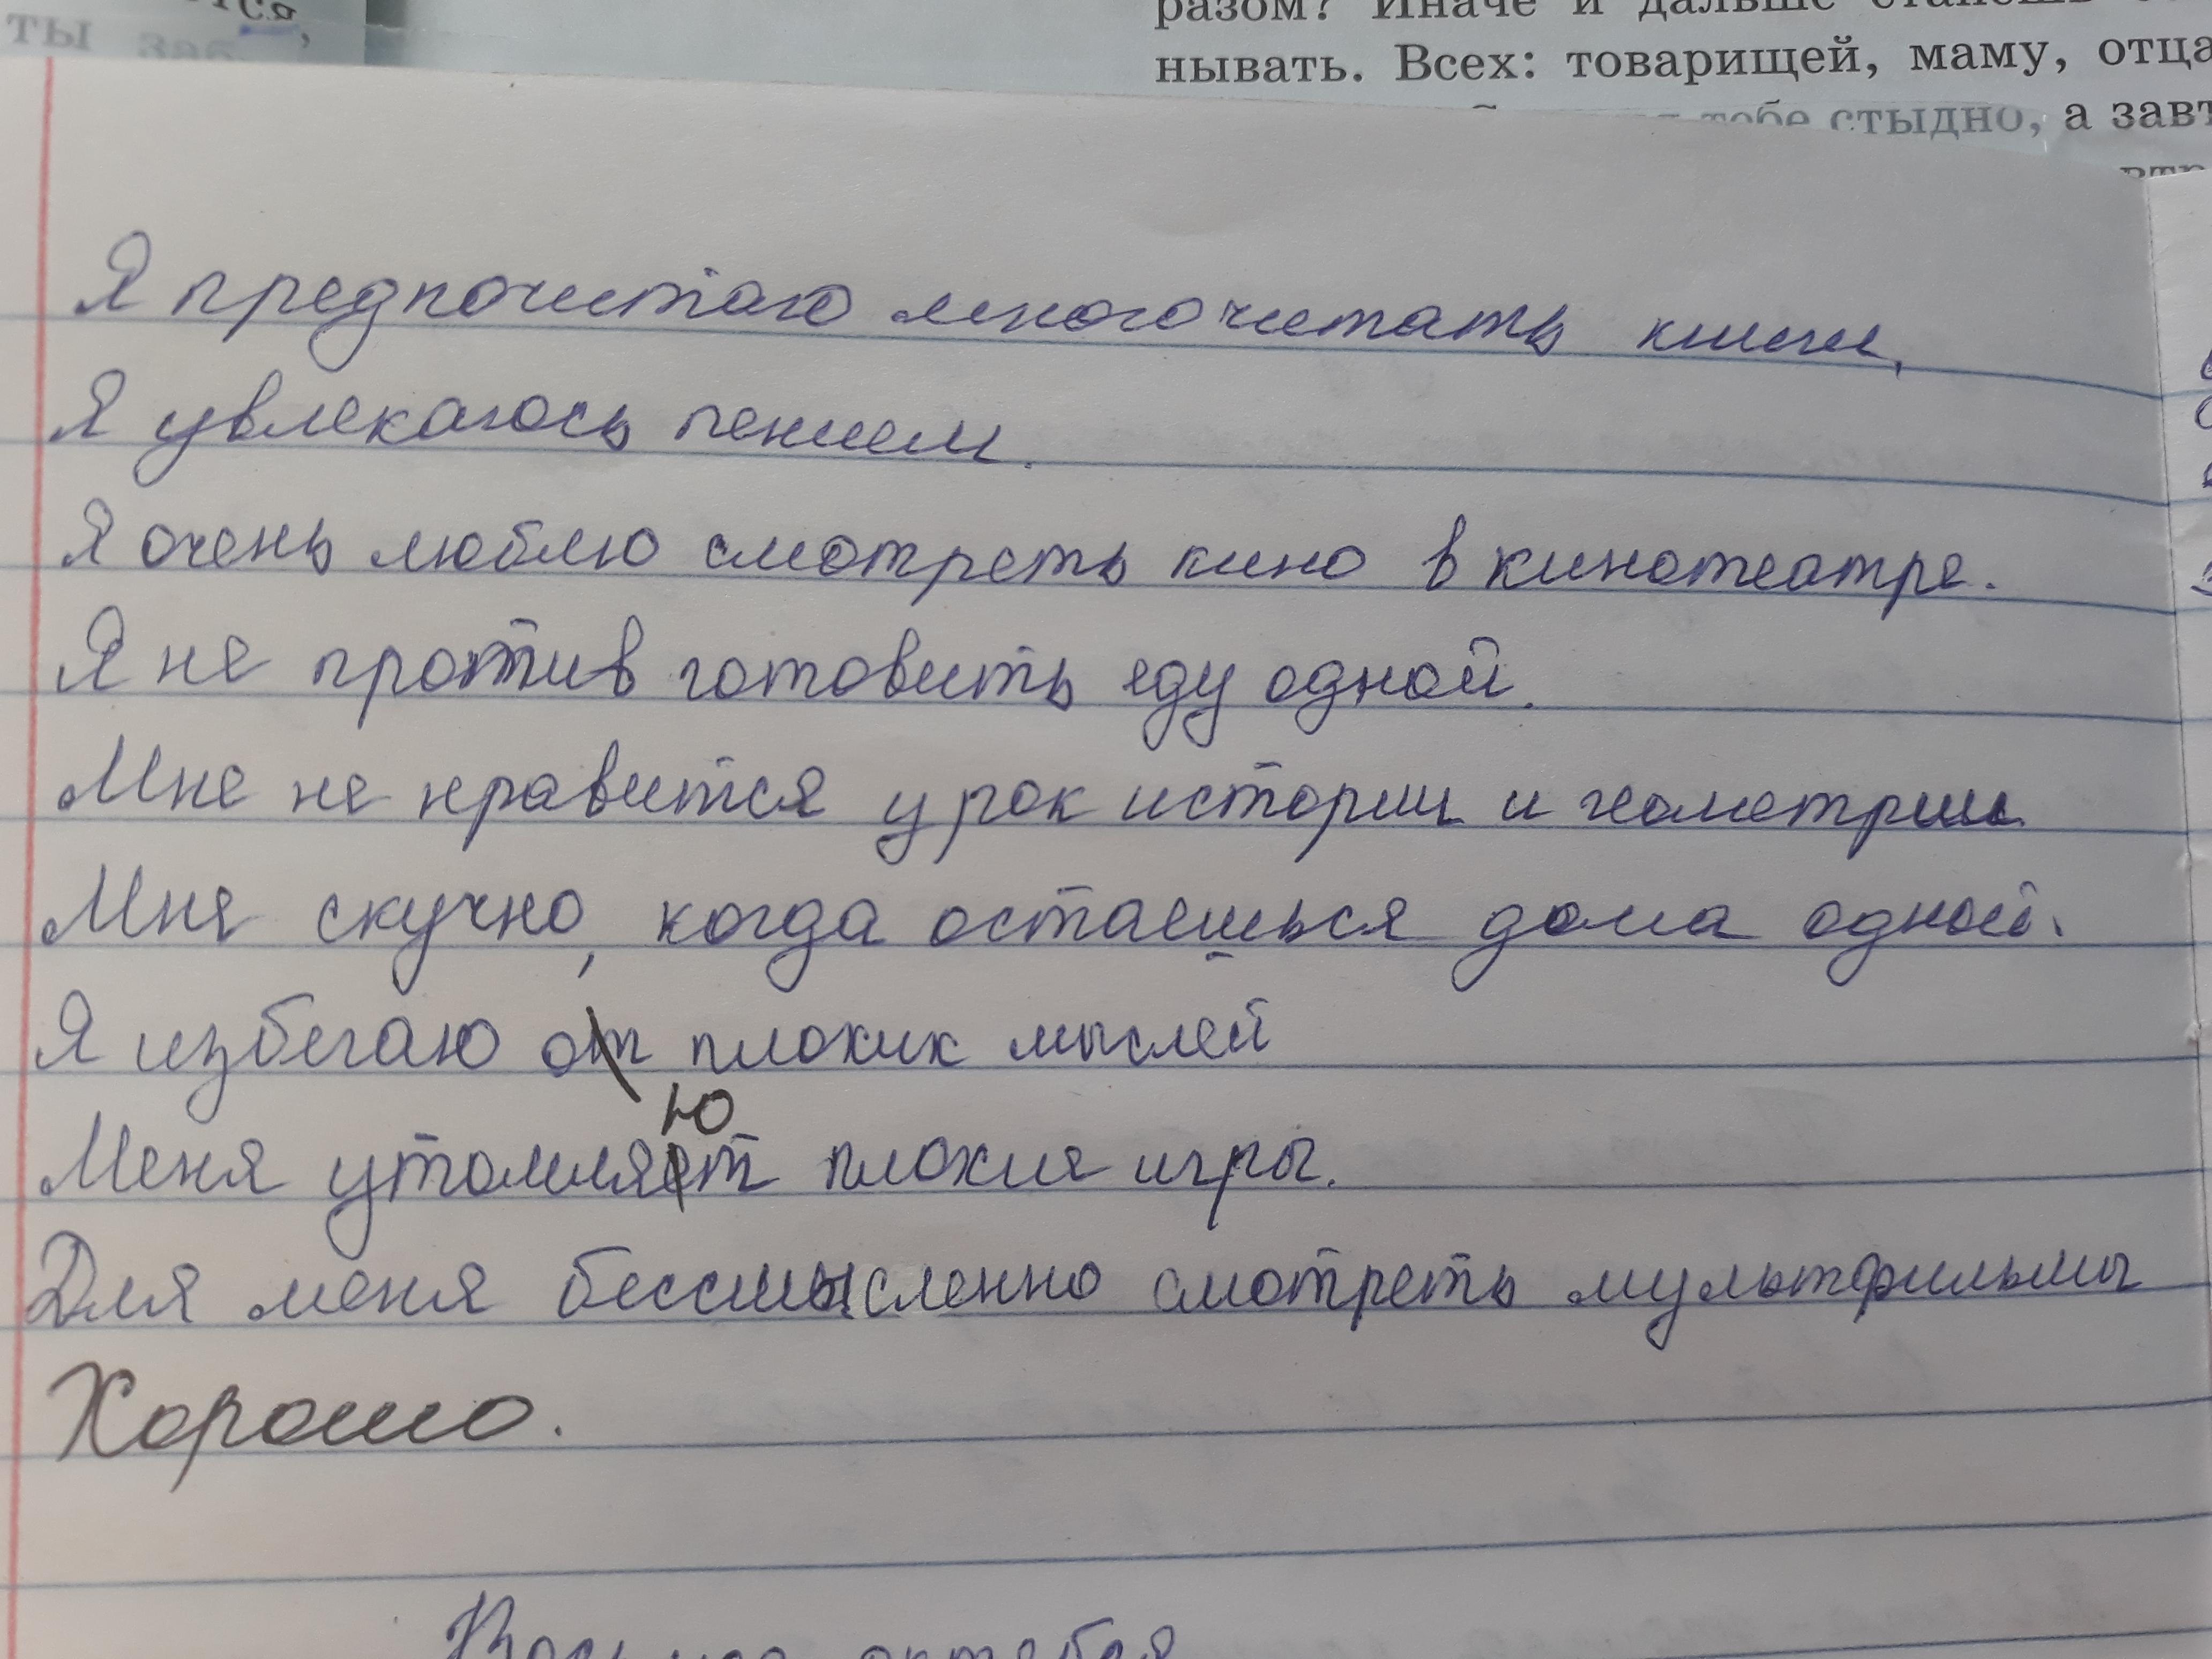 ты
разом? Иначе и дальше станешь
нывать. Всех: товарищей, маму, отца
тебе стыдно, а завт
Я предпочитаю много читать книги.
Я увлекаюсь пением.
Я очень люблю смотреть кино в кинотеатре.
Я не против готовить еду одной.
Мне не нравится урок истории и геометрии
Мне скучно, когда остаешься дома одной.
Я избегаю от плохих мыслей
ю
Меня утомляет плохие игры.
Для меня бессмысленно смотреть мультфильмы
Хорошо.
Восьмое октября